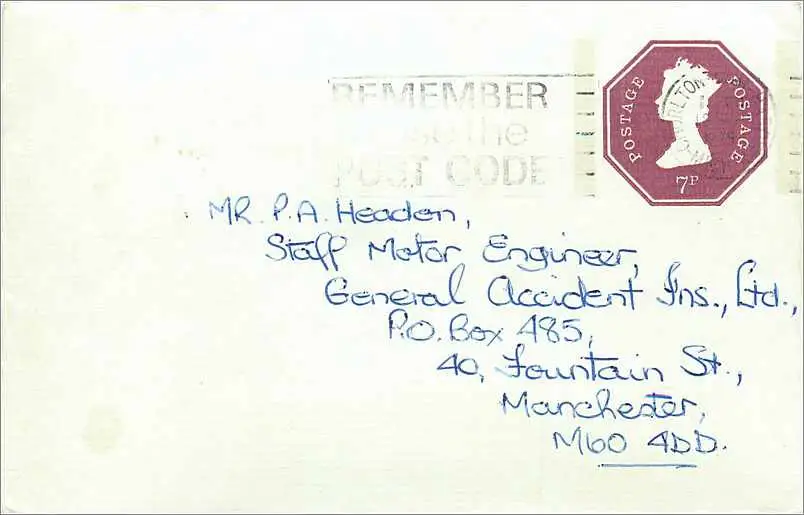 REMEMBER
use the
POST CODE
POSTAGE
POSTAGE
7P
MR. P.A. Headen,
Staff Motor Engineer,
General Accident Ins., Ltd.,
P.O. Box 485,
40, Fountain St.,
Manchester,
M60 4DD.